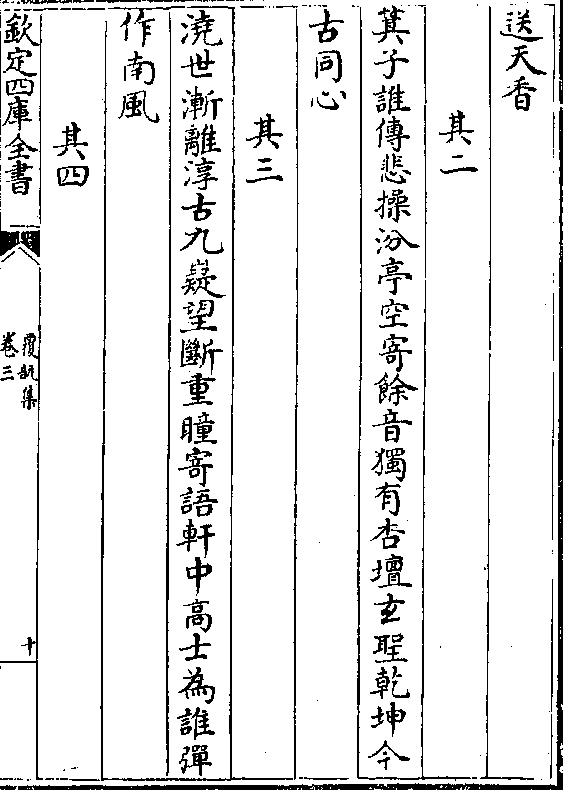 送天香
其二
箕子誰傳悲操汾亭空寄餘音獨有杏壇玄聖乾坤今
古同心
其三
澆世漸離淳古九嶷望斷重瞳寄語軒中高士為誰彈
作南風
其四
欽定四庫全書
覆瓿集
卷三
十